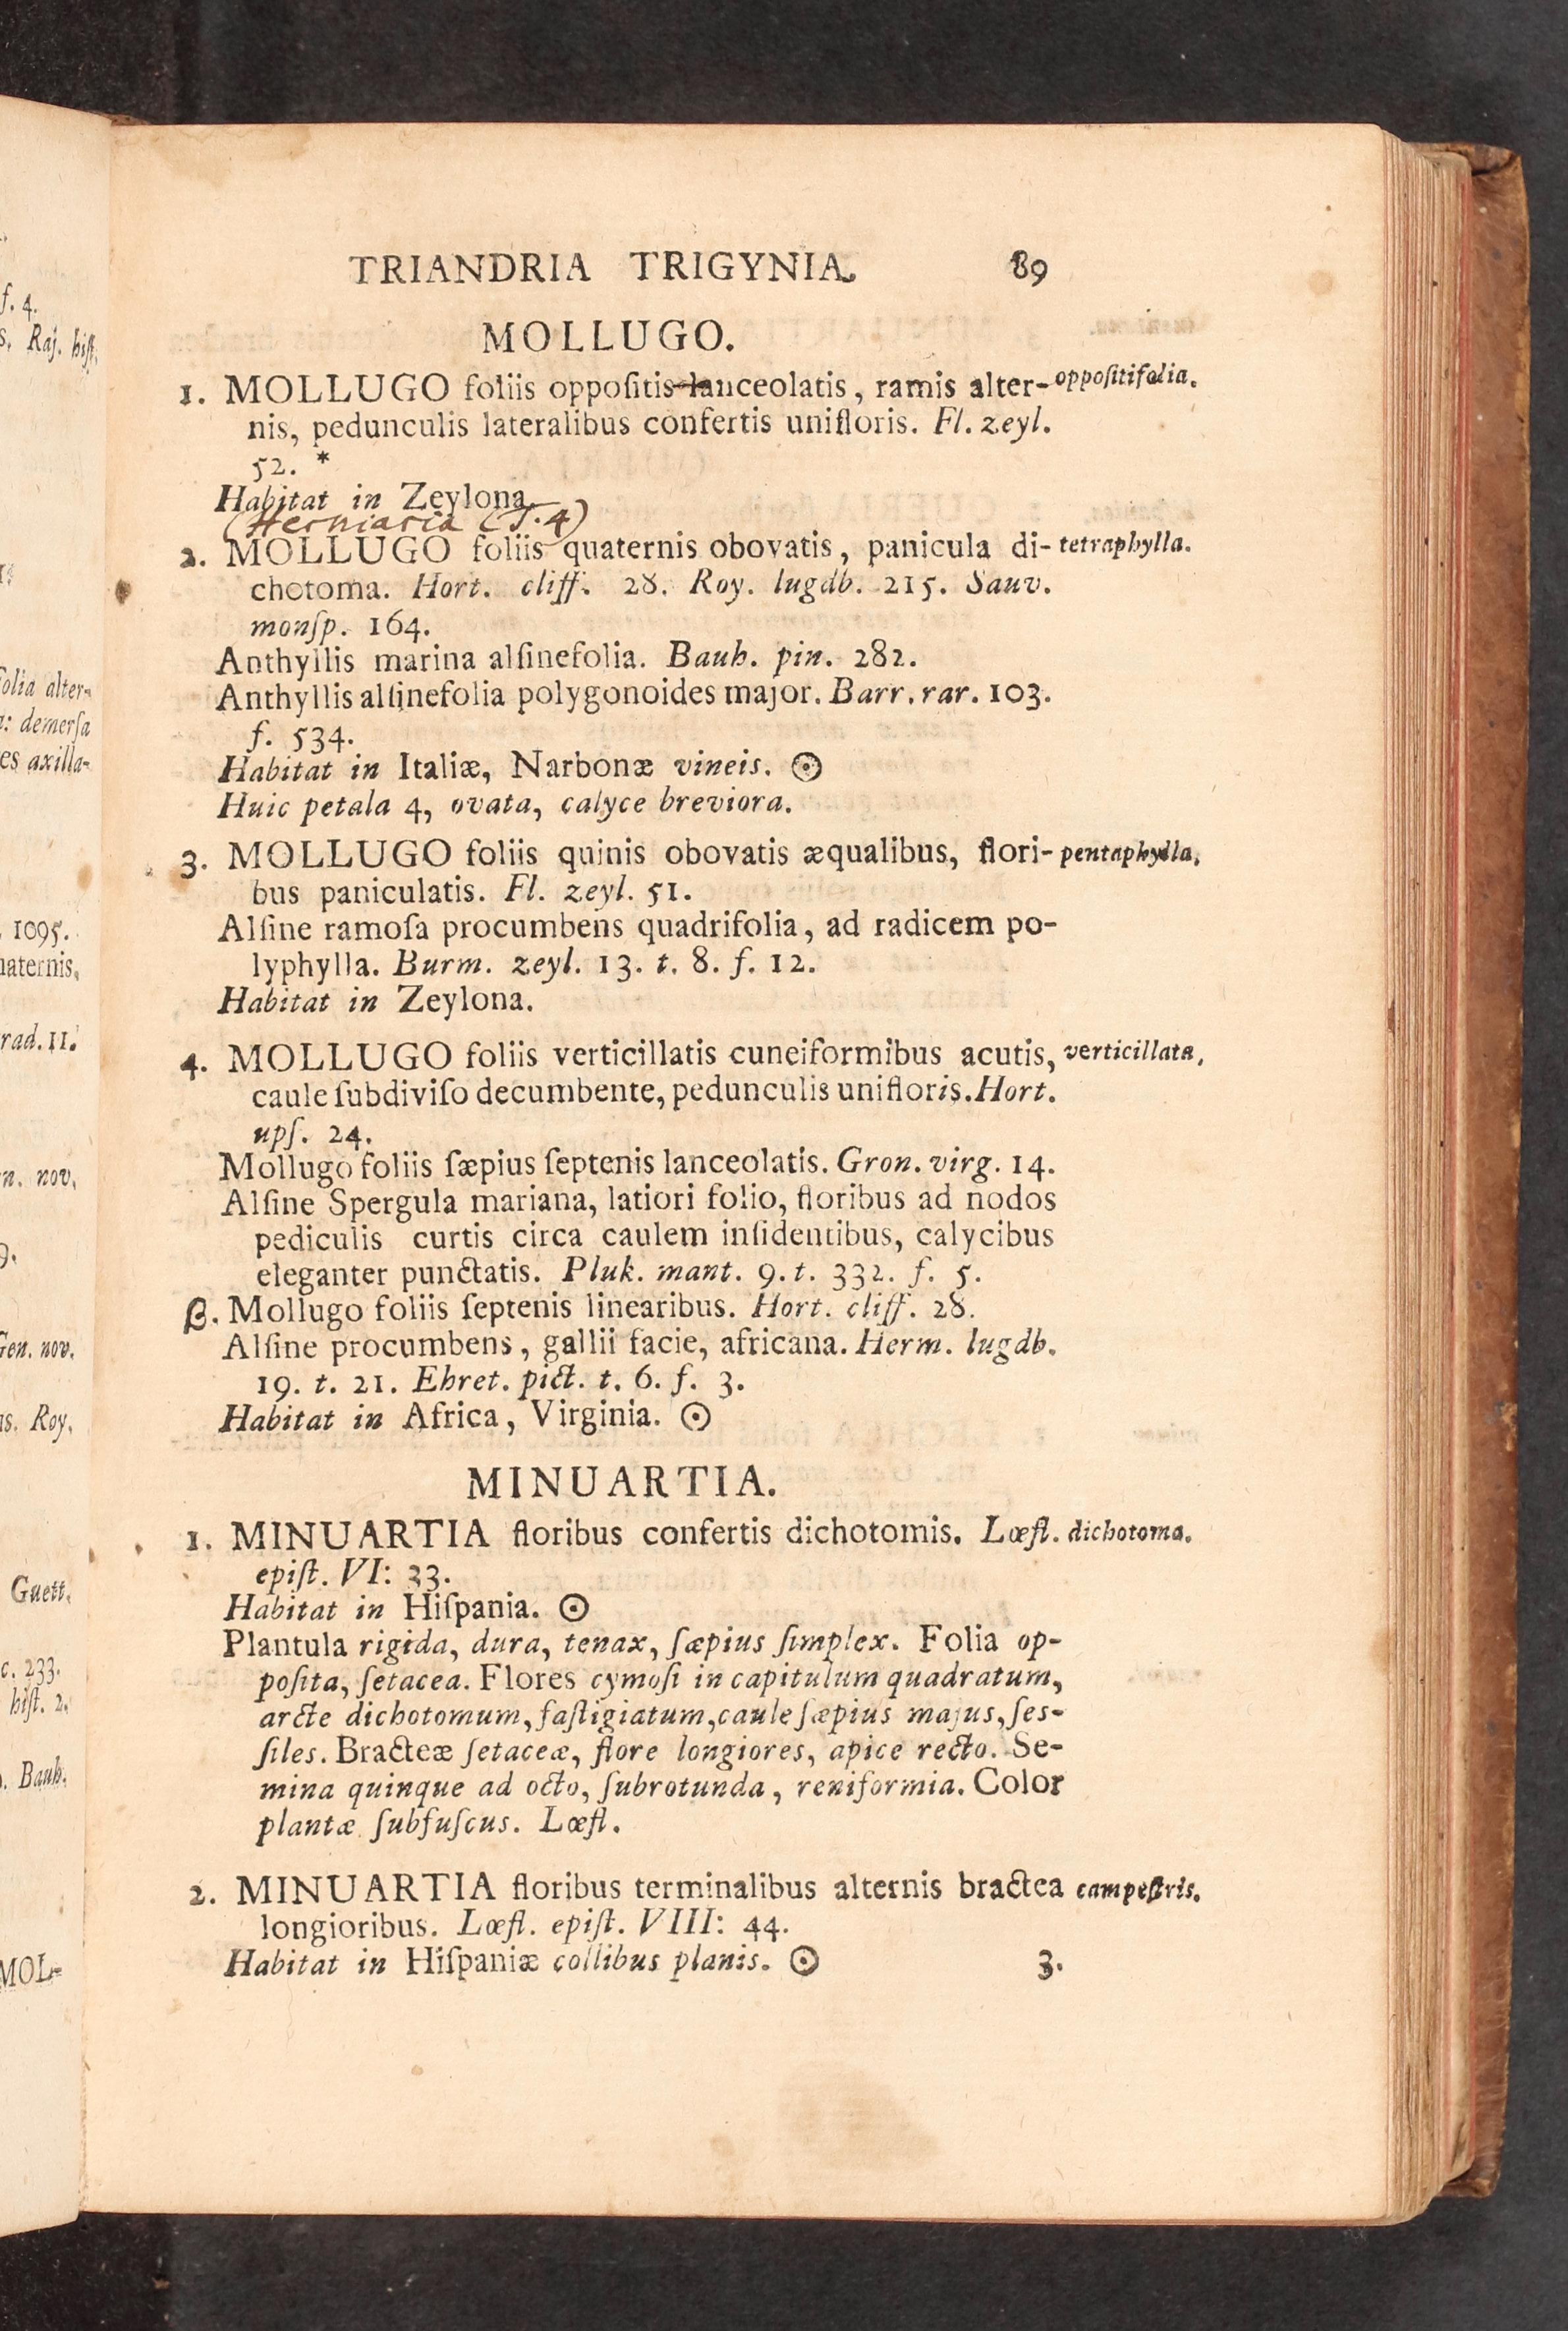 f. 4.
Raj. hist.
folia alter-
demersa
es axilla-
1095.
naternis,
rad. 11.
n. nov.
Gen. nov.
Roy.
Guett.
c. 233.
hist. 2.
Bauh.
MOL-
TRIANDRIA TRIGYNIA. 89
MOLLUGO.
1. MOLLUGO foliis oppoſitis lanceolatis, ramis alter- oppoſitifolia.
nis, pedunculis lateralibus confertis unifloris. Fl. zeyl.
52. *
Habitat in Zeylona.
(Herniaria (T. 4)
2. MOLLUGO foliis quaternis obovatis, panicula di- tetraphylla.
chotoma. Hort. cliff. 28. Roy. lugdb. 215. Sauv.
monſp. 164.
Anthyllis marina alſinefolia. Bauh. pin. 282.
Anthyllis alſinefolia polygonoides major. Barr. rar. 103.
f. 534.
Habitat in Italiæ, Narbonæ vineis. ☉
Huic petala 4, ovata, calyce breviora.
3. MOLLUGO foliis quinis obovatis æqualibus, flori- pentaphylla.
bus paniculatis. Fl. zeyl. 51.
Alſine ramoſa procumbens quadrifolia, ad radicem po-
lyphylla. Burm. zeyl. 13. t. 8. f. 12.
Habitat in Zeylona.
4. MOLLUGO foliis verticillatis cuneiformibus acutis, verticillata.
caule ſubdiviſo decumbente, pedunculis unifloris. Hort.
upſ. 24.
Mollugo foliis ſæpius ſeptenis lanceolatis. Gron. virg. 14.
Alſine Spergula mariana, latiori folio, floribus ad nodos
pediculis curtis circa caulem inſidentibus, calycibus
eleganter punctatis. Pluk. mant. 9. t. 332. f. 5.
β. Mollugo foliis ſeptenis linearibus. Hort. cliff. 28.
Alſine procumbens, gallii facie, africana. Herm. lugdb.
19. t. 21. Ehret. pict. t. 6. f. 3.
Habitat in Africa, Virginia. ☉
MINUARTIA.
1. MINUARTIA floribus confertis dichotomis. Lœfl. dichotoma.
epiſt. VI: 33.
Habitat in Hiſpania. ☉
Plantula rigida, dura, tenax, ſæpius ſimplex. Folia op-
poſita, ſetacea. Flores cymoſi in capitulum quadratum,
arcte dichotomum, faſtigiatum, caule ſæpius majus, ſeſ-
ſiles. Bracteæ ſetaceæ, flore longiores, apice recto. Se-
mina quinque ad octo, ſubrotunda, reniformia. Color
plantæ ſubfuſcus. Lœfl.
2. MINUARTIA floribus terminalibus alternis bractea campeſtris.
longioribus. Lœfl. epiſt. VIII: 44.
Habitat in Hiſpaniæ collibus planis. ☉ 3.